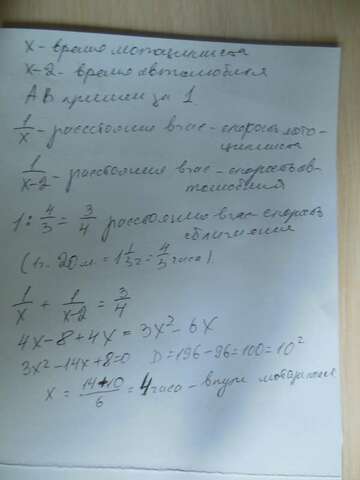 x - время мотоциклиста
x-2 - время автомобиля
AB примем за 1
1/x - расстояние в час - скорость мото-
циклиста
1/x-2 - расстояние в час - скорость ав-
томобиля
1 : 4/3 = 3/4 расстояние в час - скорость
сближения
(1ч. 20м = 1 1/3 ч = 4/3 часа)
1/x + 1/x-2 = 3/4
4x-8+4x = 3x²-6x
3x²-14x+8=0 D=196-96=100=10²
x = 14+10/6 = 4 часа - в пути